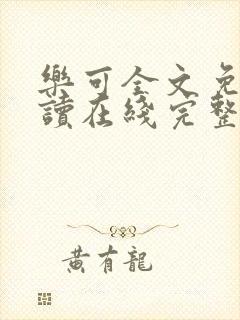 樂可全文免
讀在綫完整
黃有龍